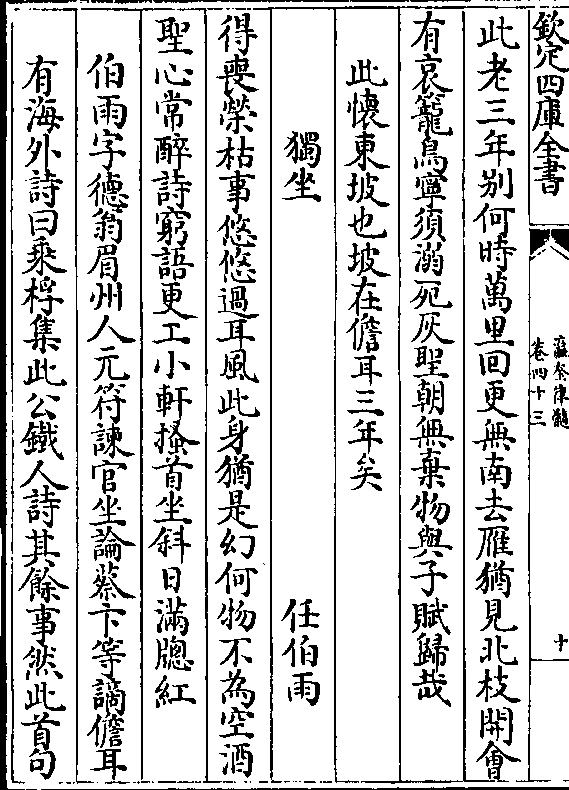 欽定四庫全書
瀛奎律髓
卷四十三
十
此老三年别何時萬里回更無南去雁猶見北枝開會
有哀籠鳥寧須溺死灰聖朝無棄物與子賦歸哉
此懷東坡也坡在儋耳三年矣
獨坐
任伯雨
得喪榮枯事悠悠過耳風此身猶是幻何物不為空酒
聖心常醉詩窮語更工小軒搔首坐斜日滿牎紅
伯雨字德翁眉州人元符諫官坐論蔡卞等謫儋耳
有海外詩曰乘桴集此公鐵人詩其餘事然此首句